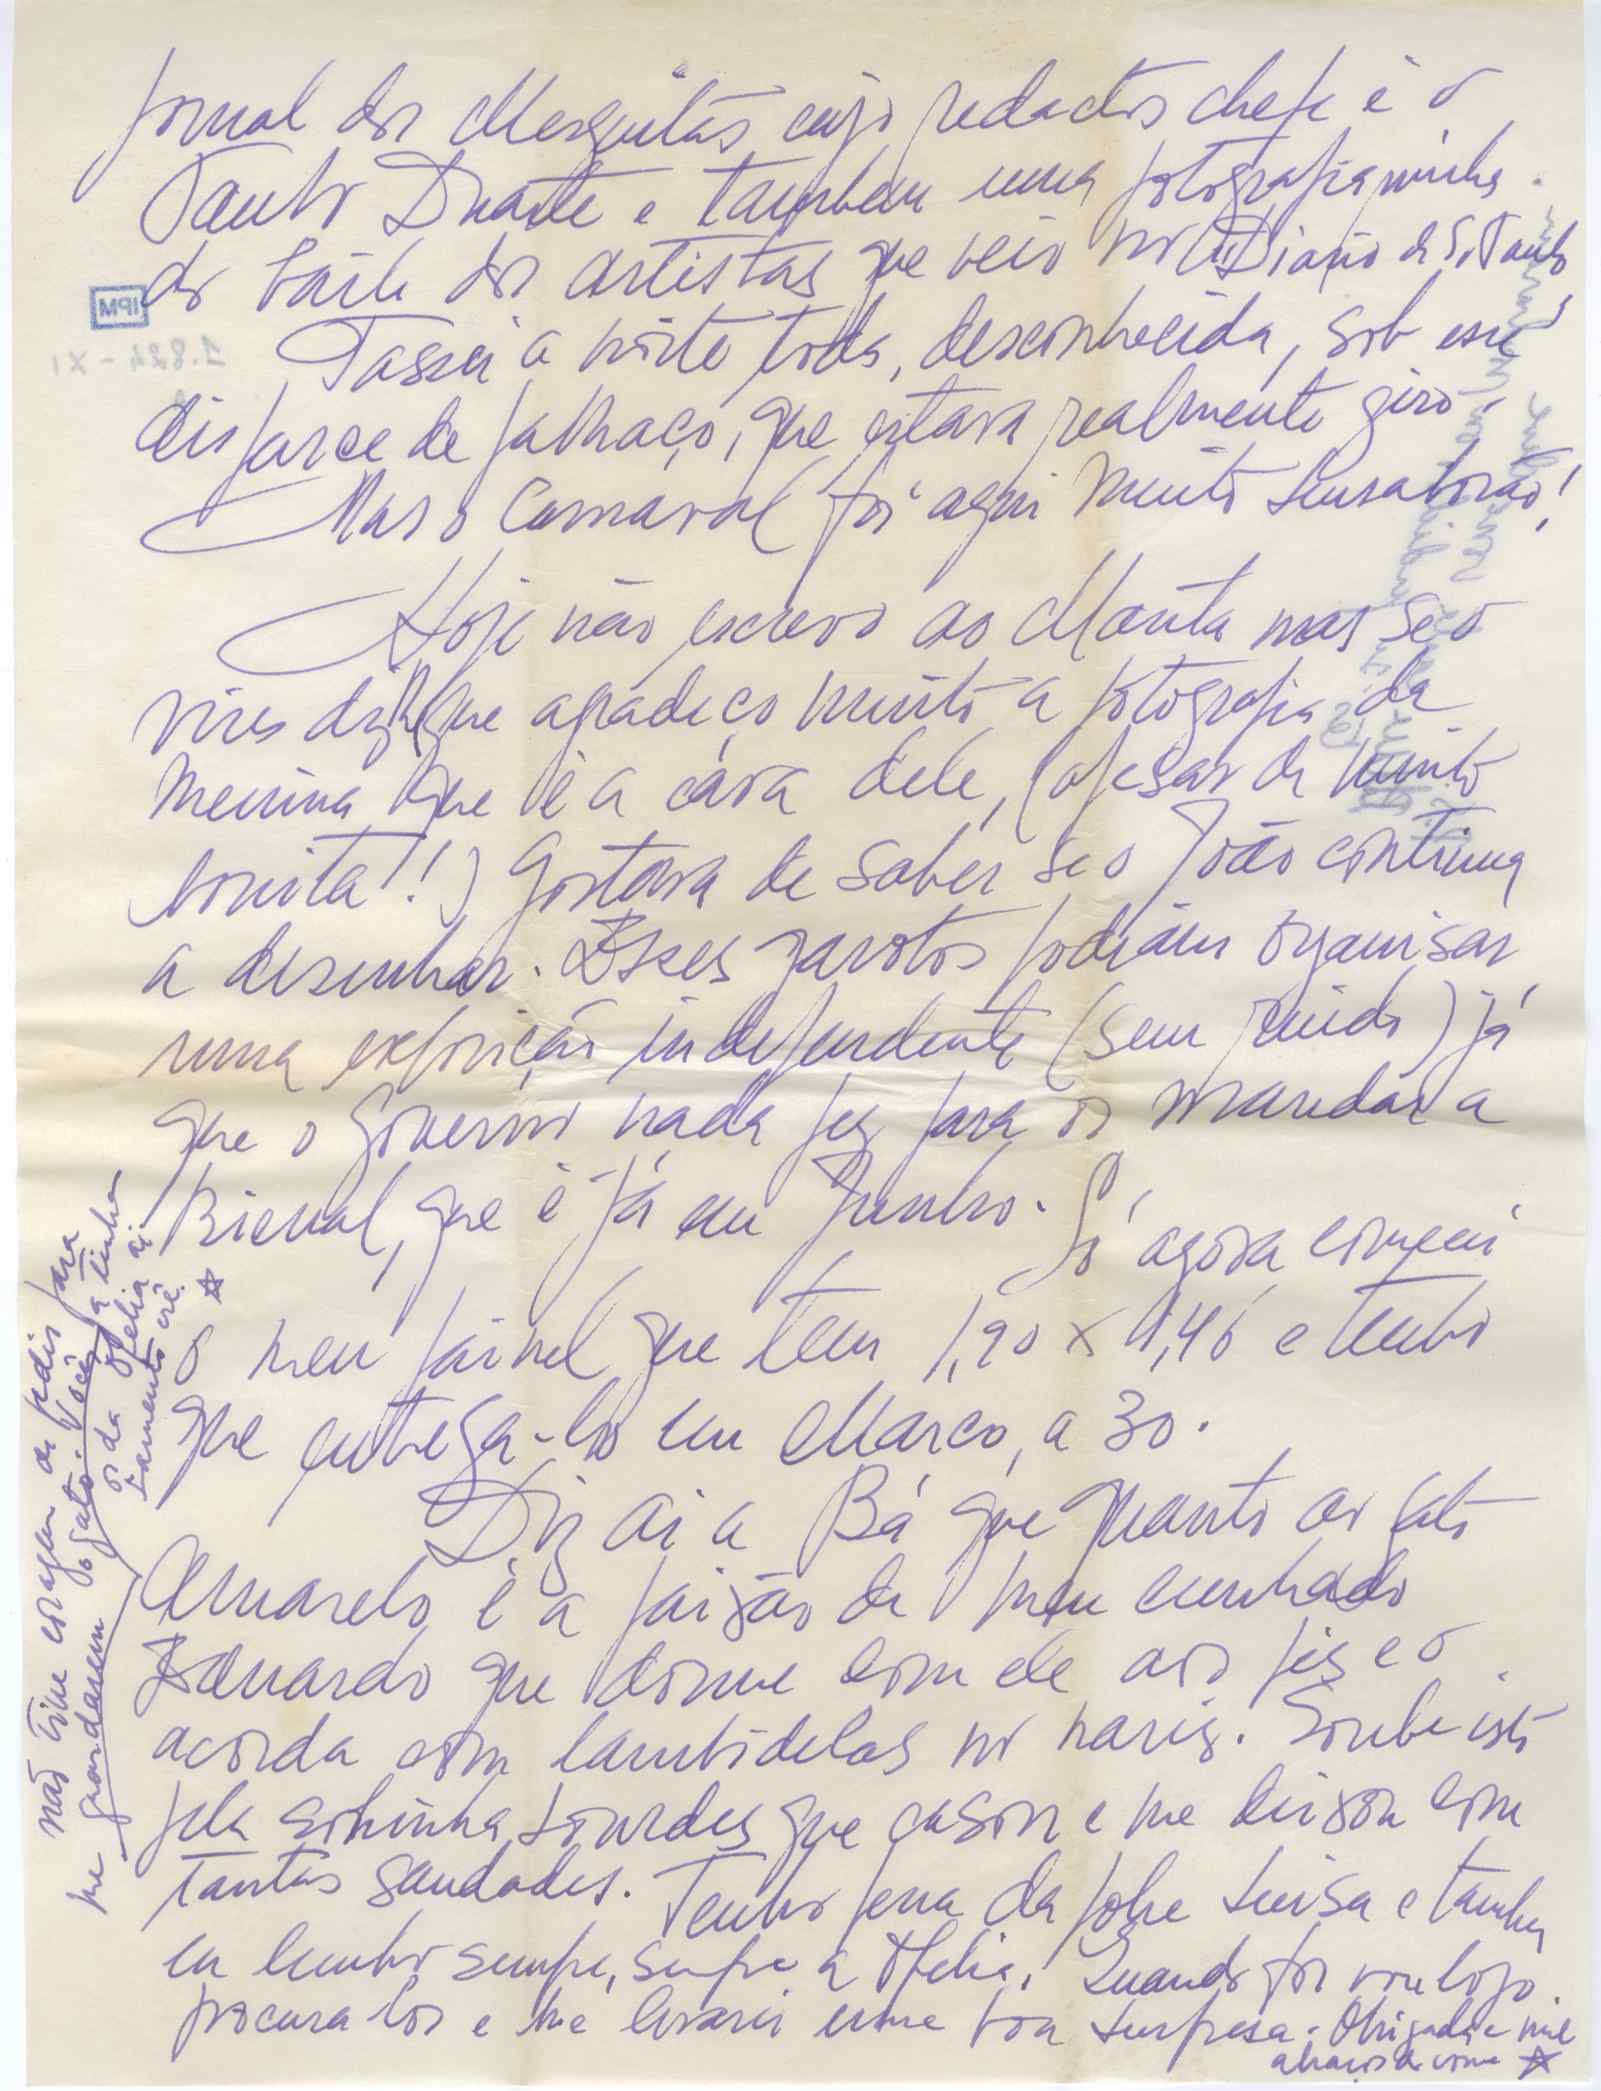 jornal dos Mesquitas, cujo redactor chefe é o
Paulo Duarte e tambem uma fotografia minha
do baile dos artistas que veio no Diário de S. Paulo
Passei a noite toda, desconhecida, sob esse
disfarce de palhaço, que estava realmente giro.
Mas o Carnaval foi aqui muito sensaborão!
Hoje não escrevo ao Manta mas se o
vires diz que agradeço muito a fotografia da
menina que é a cára dele, (apesar de muito
bonita!!) Gostava de saber se o João continua
a desenhar. Esses garotos podiam organisar
uma exposição independente (sem juido) já
que o Governo nada fez para os mandar a
Bienal, que é já em Junho. Só agora comecei
o meu painel que tem 1,90 x 1,46 e tenho
que entrega-lo em Março, a 30.
Diz ai a Bá que quanto ao gato
Amarelo é a paixão de meu cunhado
Eduardo que dorme com ele aos pés e o
acorda com lambidelas no nariz. Soube isto
pela Lourdes que casou e me deixou com
tantas saudades. Tenho pena da pobre Luisa e tambem
eu lembro sempre, sempre a Ofelia. Quando for vou logo
procura-los e me levarei uma boa surpresa. Obrigada e mil
abraços da vossa ☆
não tive coragem de pedir para
me guardarem o gato. Vocês já tinham
o da Ofelia ai
☆
IPM
1.824 - XI